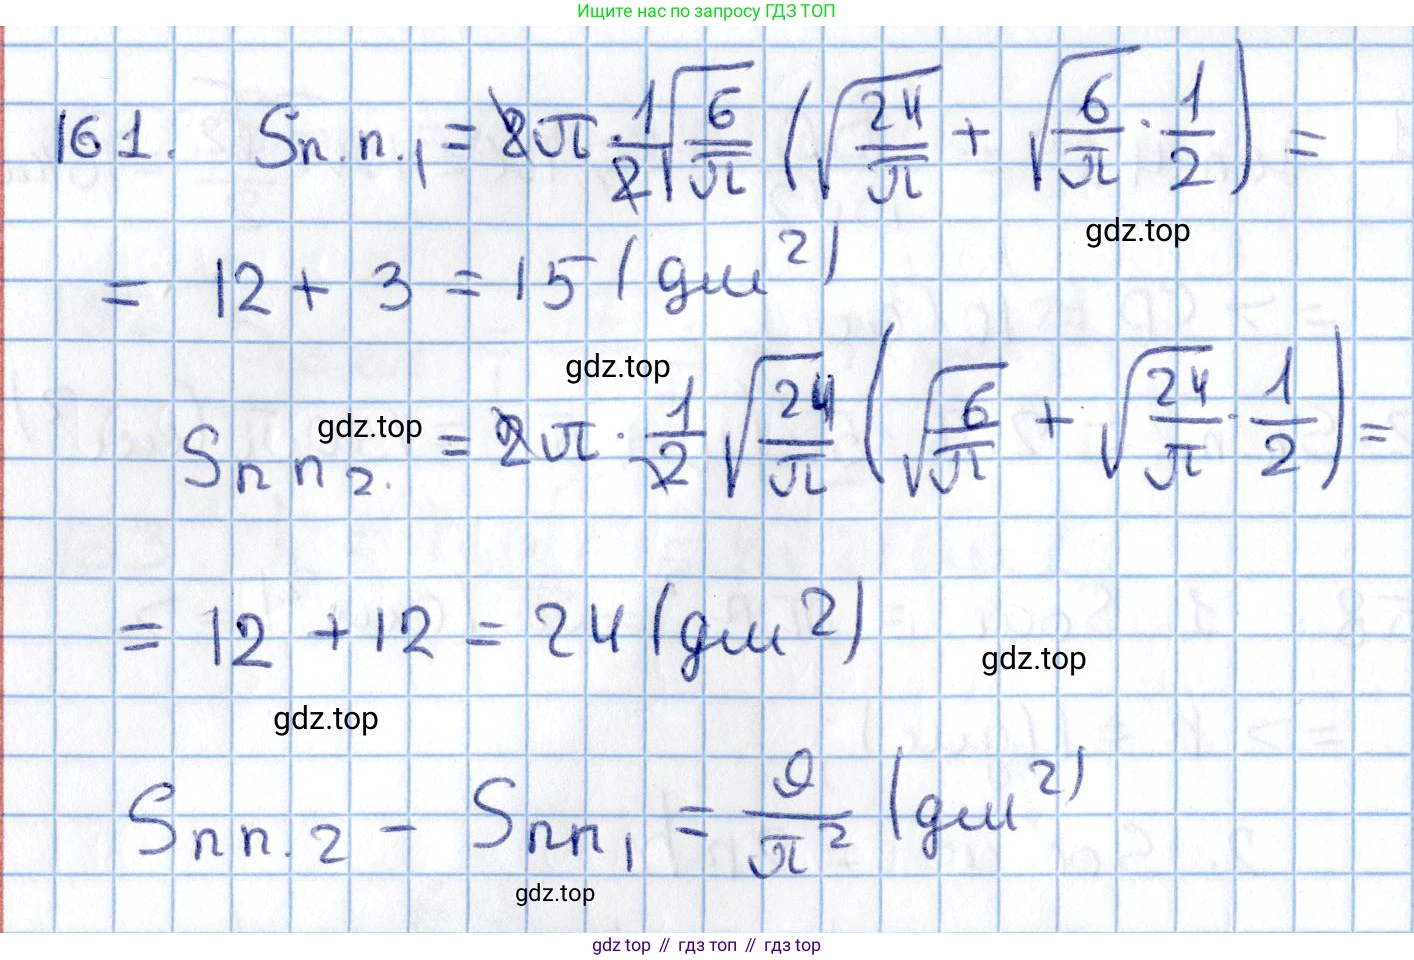 Ищите нас по запросу ГДЗ ТОП
161. Sп.п.1 = 2π · 1/2 √(6/π) (√(24/π) + √(6/π) · 1/2) =
gdz.top
= 12 + 3 = 15 (дм²)
gdz.top
gdz.top
Sп п 2. = 2π · 1/2 √(24/π) (√(6/π) + √(24/π) · 1/2) =
= 12 + 12 = 24 (дм²)
gdz.top
gdz.top
Sпп.2 − Sпп1 = 9/π² (дм²)
gdz.top
gdz top // гдз топ // gdz top